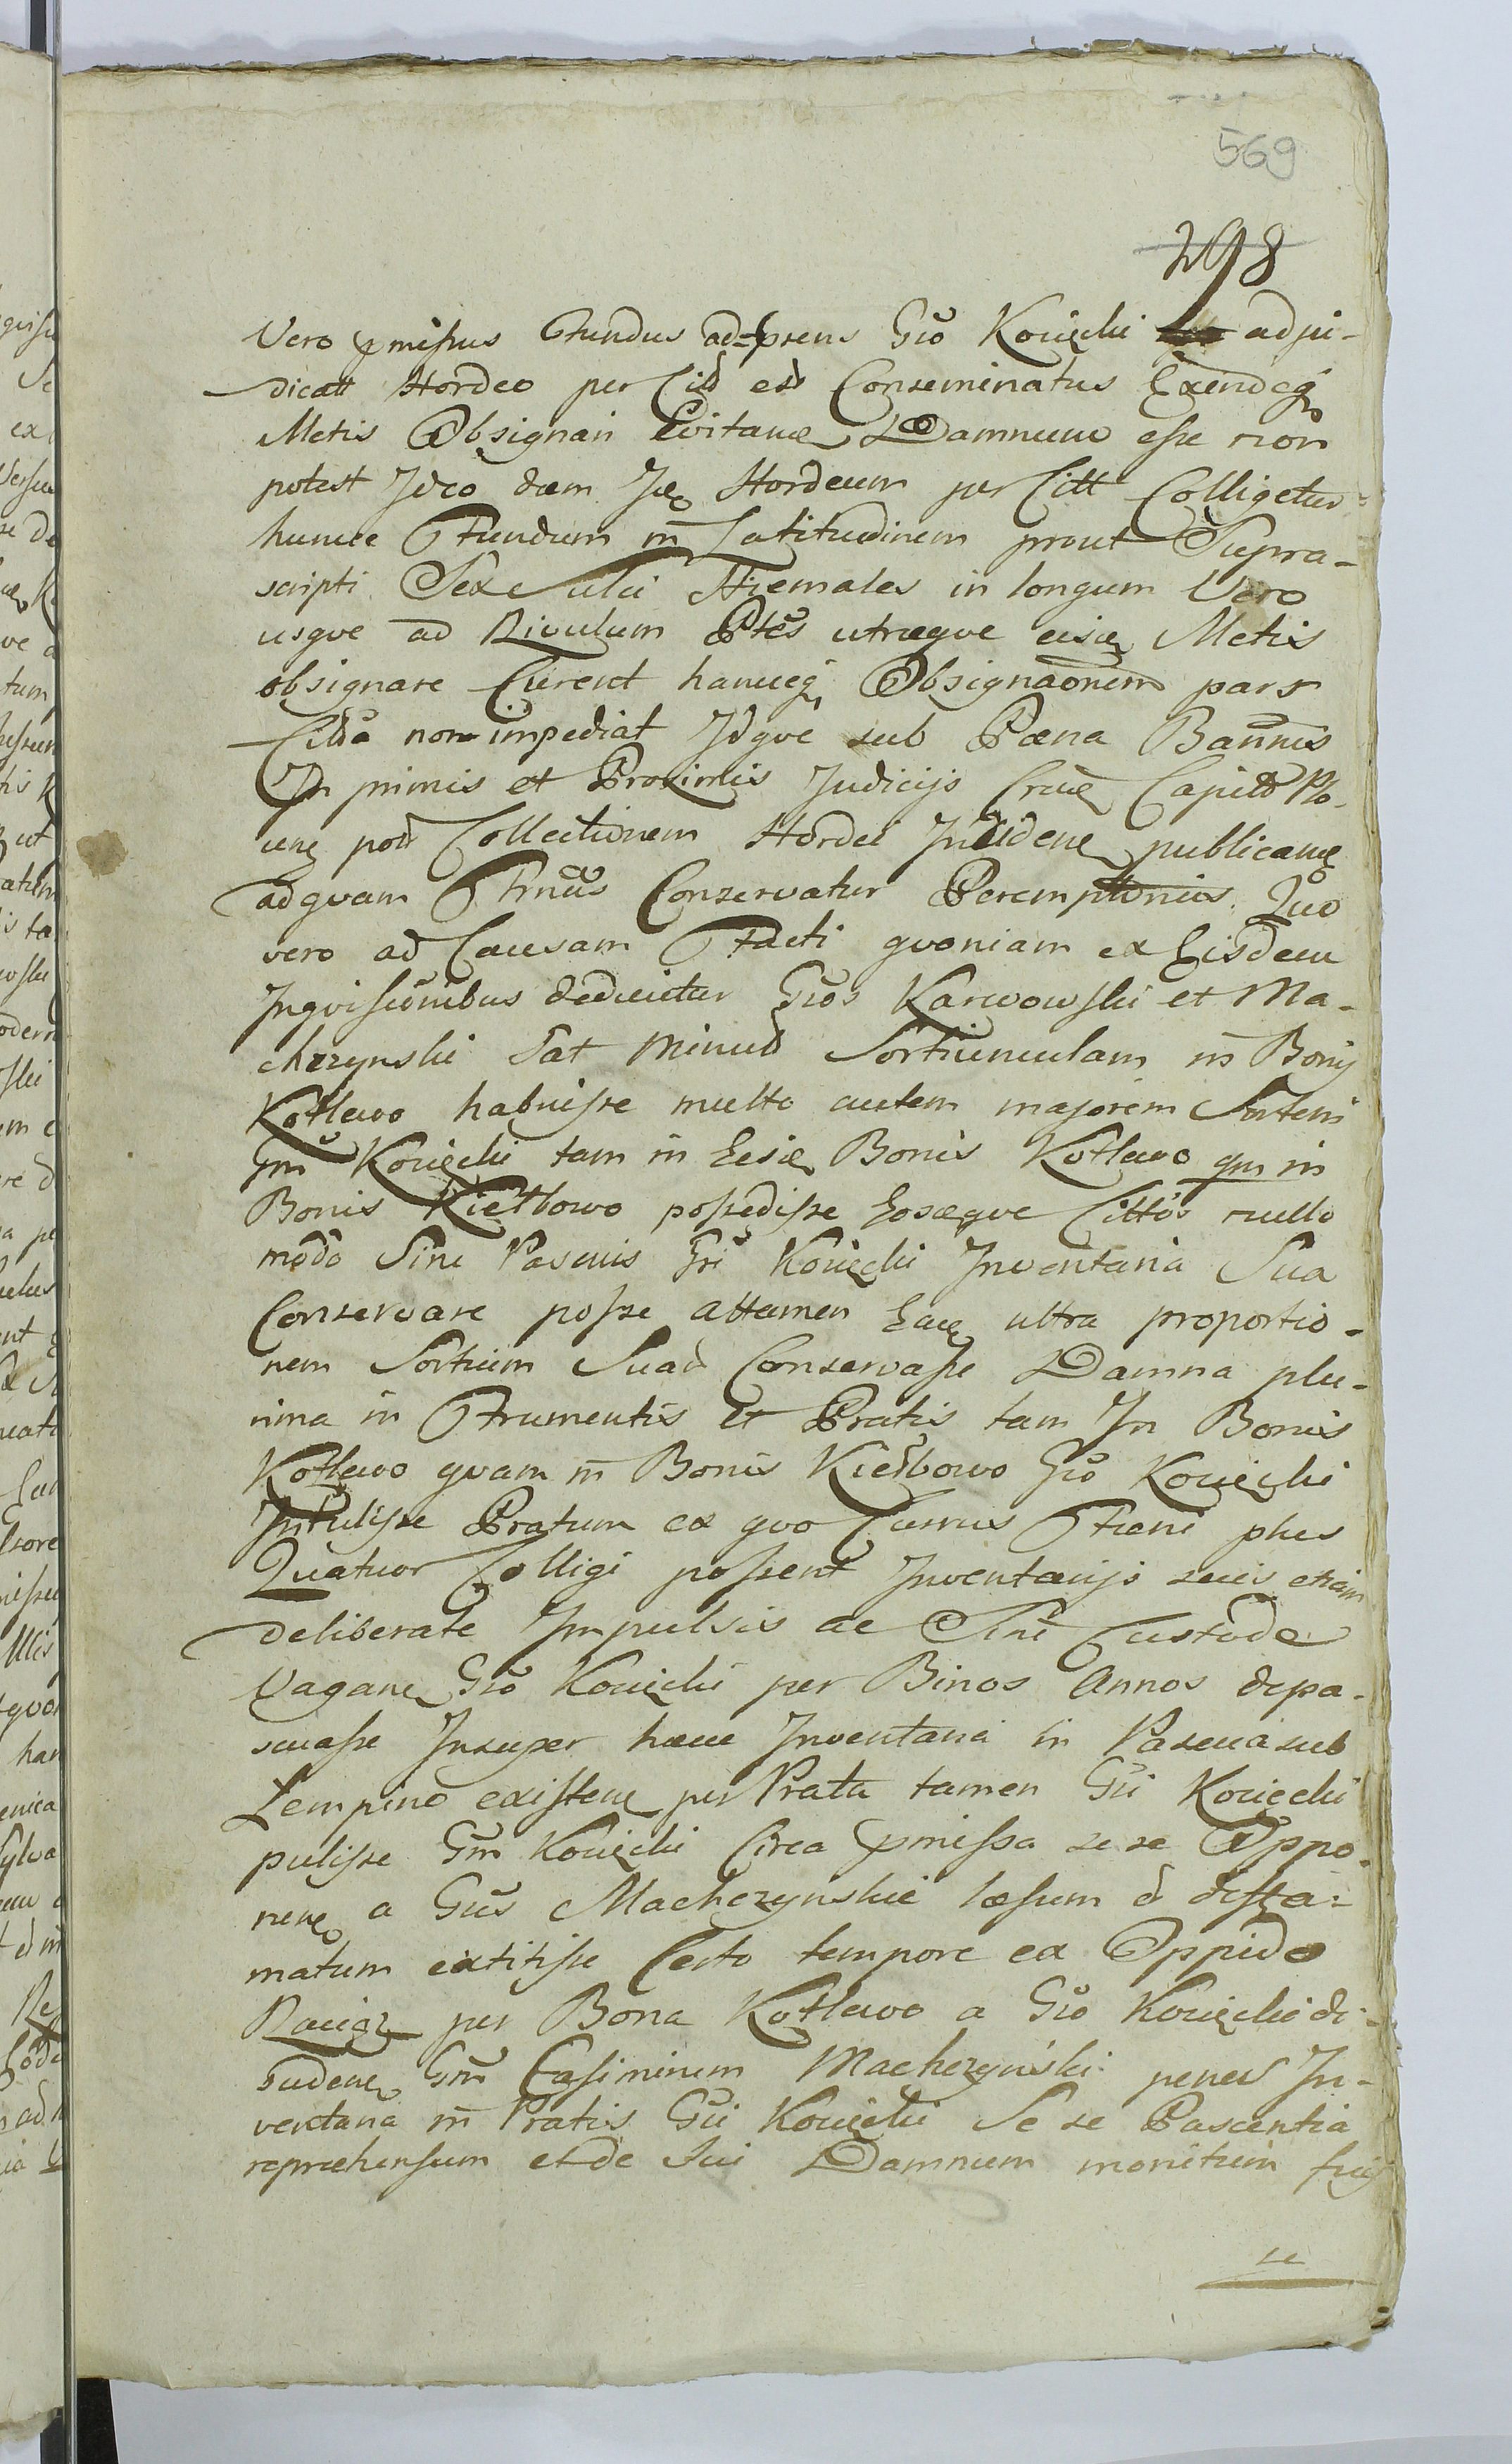 569
298
Vero pmissus Fundus ad-prens Gso Kouięcki adju-
dicatt Hordeo per Citt est Conseminatus Exindeq
Metis Obsignari Evitan Damnum esse non
potest Ideo dum Hordeum per Citt Colligetur
hunce Fundum in Latitudinem prout Supra-
scripti Sex Sulci Hiemales in longum Vero
usque ad Rivulum Ptes utraeque Metis
obsignare Curent hancq Obsignaonem pars
Citta non impediat Idque sub Paena Bannis
In primis et Proximis Judicijs Capit
post Collectionem Hordei publican
ad quam Conservatur Peremptorius. Quo
vero ad Causam Facti quoniam ex Eisdem
Inquisionibus deducitur Gsos Karwowski et Ma-
cherzynski Sat Minus Sortiunculam in Bonis
Kotłewo habuisse multo autem majorem Sortem
Gsm Kouięcki tam in Bonis Kotłewo qm in
Bonis Kiełbowo possedisse Eosque Cittos nullo
modo Sine Pascuis Gsi Kouięcki Inventaria Sua
Conservare posse attamen ultra proportio-
nem Sortium Suar Conservasse Damna plu-
rima in Frumentis et Pratis tam In Bonis
Kotłewo quam in Bonis Kiełbowo Gso Kouięcki
Intulisse Pratum ex quo Currus Faeni
Quatuor Colligi possent Inventarijs suis etiam
deliberate Impulsis ac Sine Custode
Vagan Gso Kouięcki per Binos Annos depa-
scuasse Insuper haec Inventaria in Pascua sub
Lempino existen per Prata tamen Gsi Kouięcki
pulisse Gsm Kouięcki Circa pmissa se se Oppo-
nen a Gsis Macherzynskie laesum et diffa-
matum extitisse Certo tempore ex Oppido
per Bona Kotłewo a Gso Kouięcki di-
Gsm Casimirum Macherzynski penes In-
ventaria in Pratis Gsi Kouięcki Se se Pascentia
repraehensum et de Sui Damnum monitum fuis
se